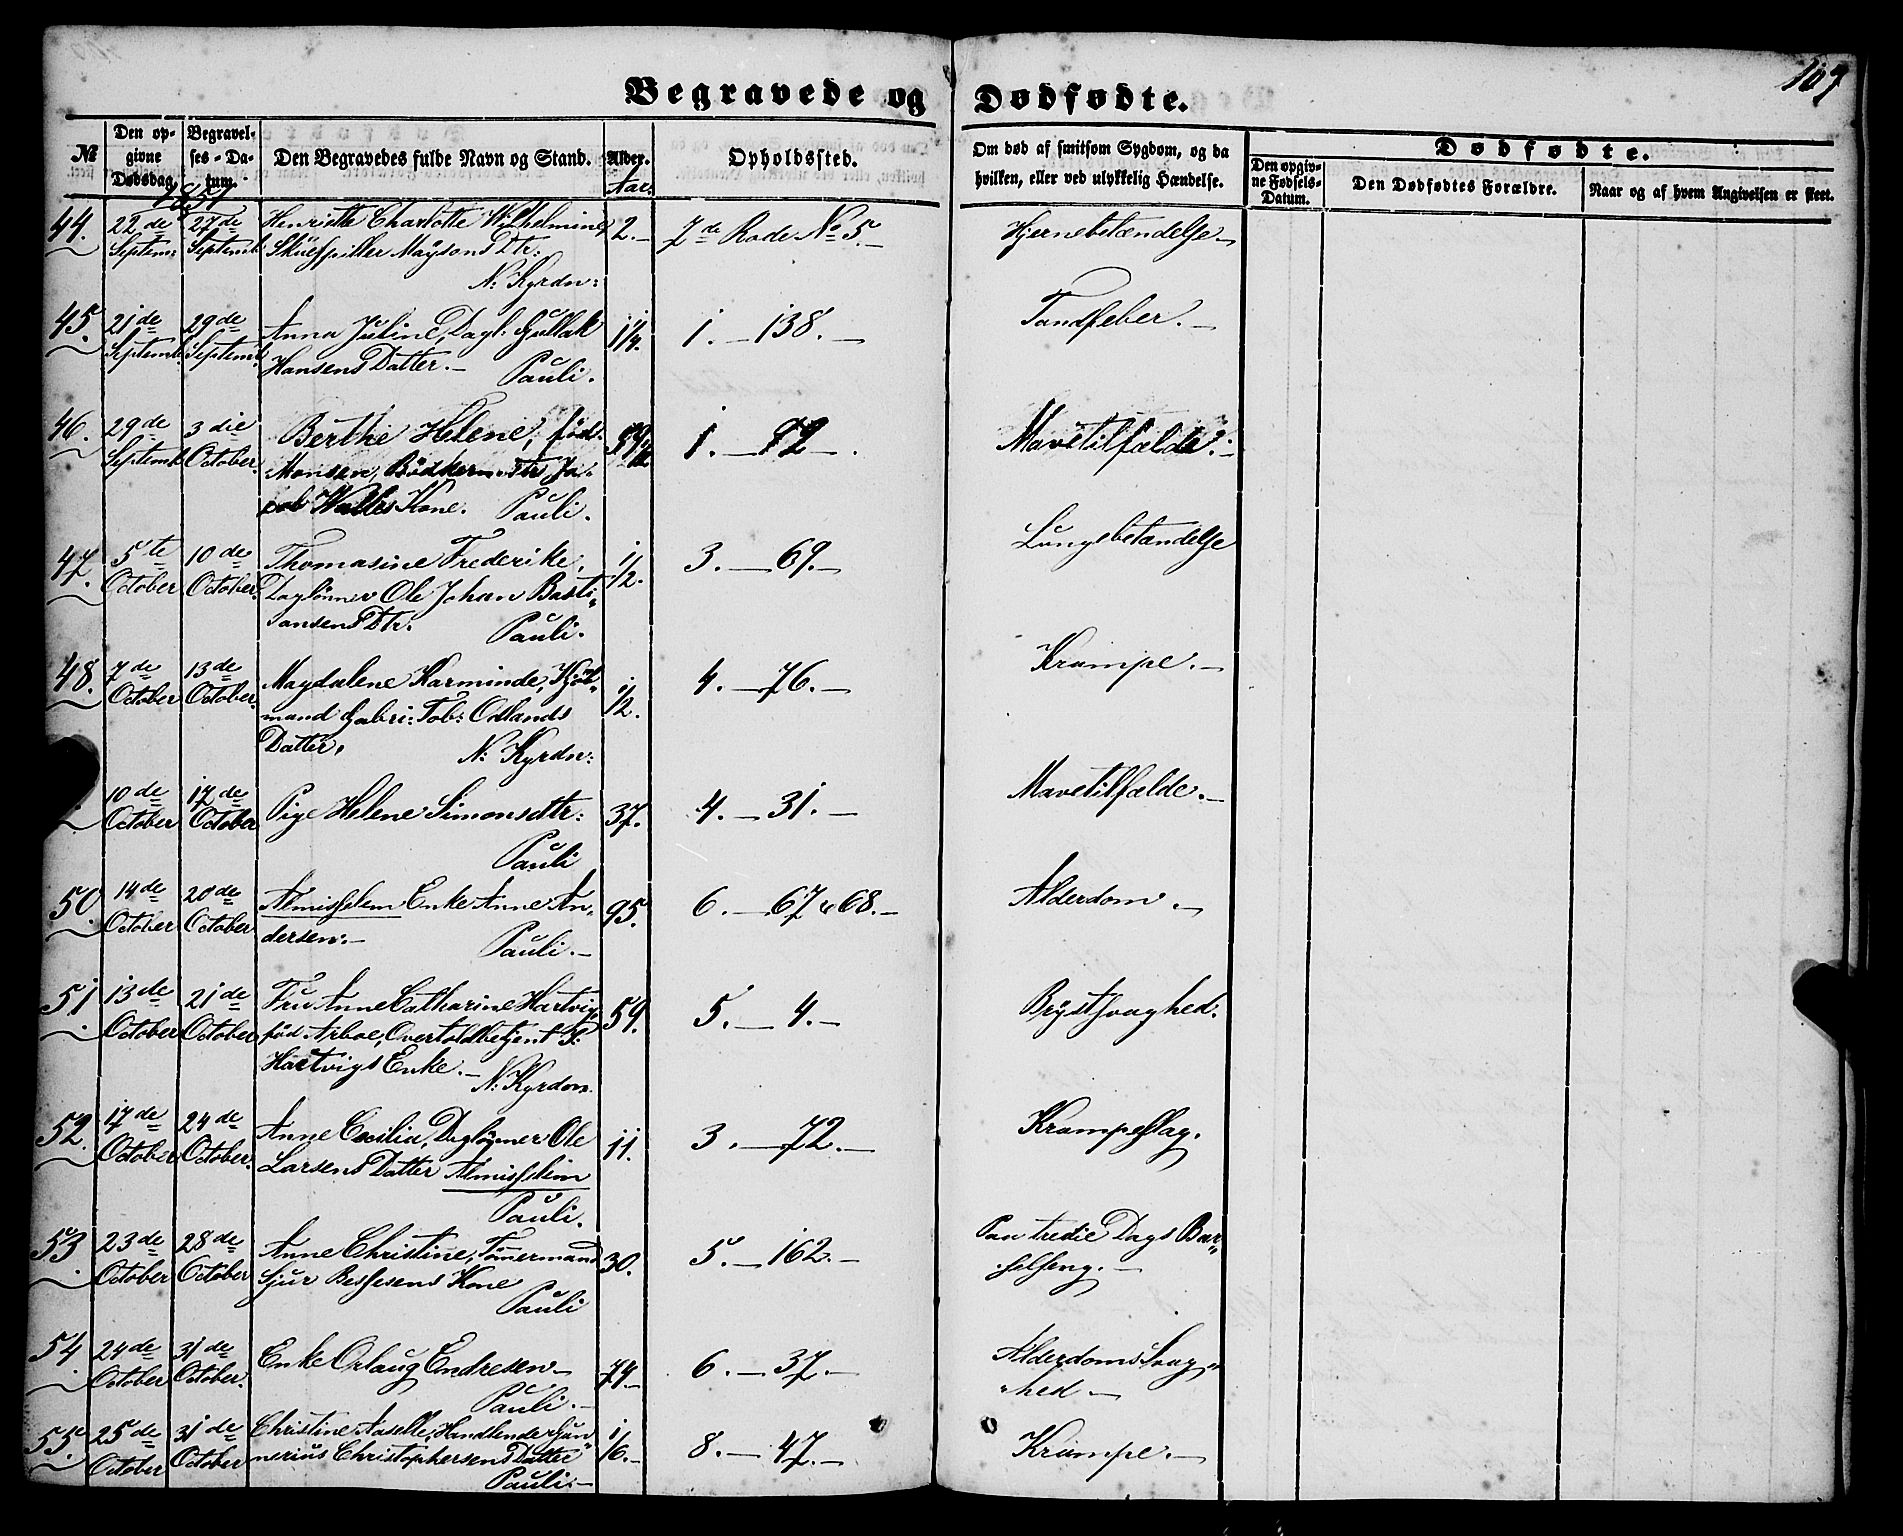 109
Begravede og Dødfødte.
№
Den opgivne Dødsdag.
Begravelses-Datum.
Den Begravedes fulde Navn og Stand.
Alder.
Aar.
Opholdssted.
Om død af smitsom Sygdom, og da hvilken, eller ved ulykkelig Hændelse.
Dødfødte.
Den opgivne Fødsels-Datum.
Den Dødfødtes Forældre.
Naar og af hvem Angivelsen er skeet.
1851
44. 22de 27de Henriette Charlotte Wilhelmine 2.— 7de Rode No 5.— Hjernebetændelse—
Septem: Septemb: Skuespiller Maysons Dtr:
N: Kyrdn:
45. 21de 29de Anna Juline, Dagl. Gullak 1/4. 1.—138.— Tandfeber.—
Septemb. Septemb. Hansens Datter.— Pauli.
46. 29de 3die Berthe Helene, fød 1.— Mavetilfælde.—
Septemb. October. Monsen, Bødkerm
Kone. Pauli.
47. 5te 10de Thomasine Frederike, 1/2. 3.—69.— Lungebetændelse
October October. Daglønner Ole Johan Basti„
ansens Dtr: Pauli.
48. 7de 13de Magdalene Karminde, Kjøb„ 1/2. 4.—76.— Krampe.—
October October. mand Gabri: Tob: Odlands
Datter, N: Kyrdn:
10de 17de Pige Helene Simonsdtr: 37. 4.—31.— Mavetilfælde.—
October October
Pauli
50. 14de 20de Almisselem Enke Anne An„ 95. 6.—67 & 68.— Alderdom.—
October October dersen.— Pauli.—
51 13de 21de Fru Anne Catharine Hartvig 59. 5.—4.— Brystsvaghed.
October October fød Arboe, Overtoldbetjent
Hartvigs Enke.— N: Kyrdn.
52. 17de 24de Anne Cecilia, Daglønner Ole 11. 3.—72.— Krampeslag.
October October. Larsens Datter Almisselim
Pauli.
53. 23de 28de Anne Christine, Tømmermand 30. 5.—162.— Paa tredie Dags Bar„
October October Sjur Bessesens Kone selseng.—
Pauli
54 24de 31de Enke Orlaug Endresen— 74.— 6.—37.— Alderdoms Svag„
October October. Pauli.— hed—
55. 25de 31de Christine Aaselle, Handlende Gun„ 1/6.— 8.—47.— Krampe.—
October October nerius Christophersens Datter
Pauli.—